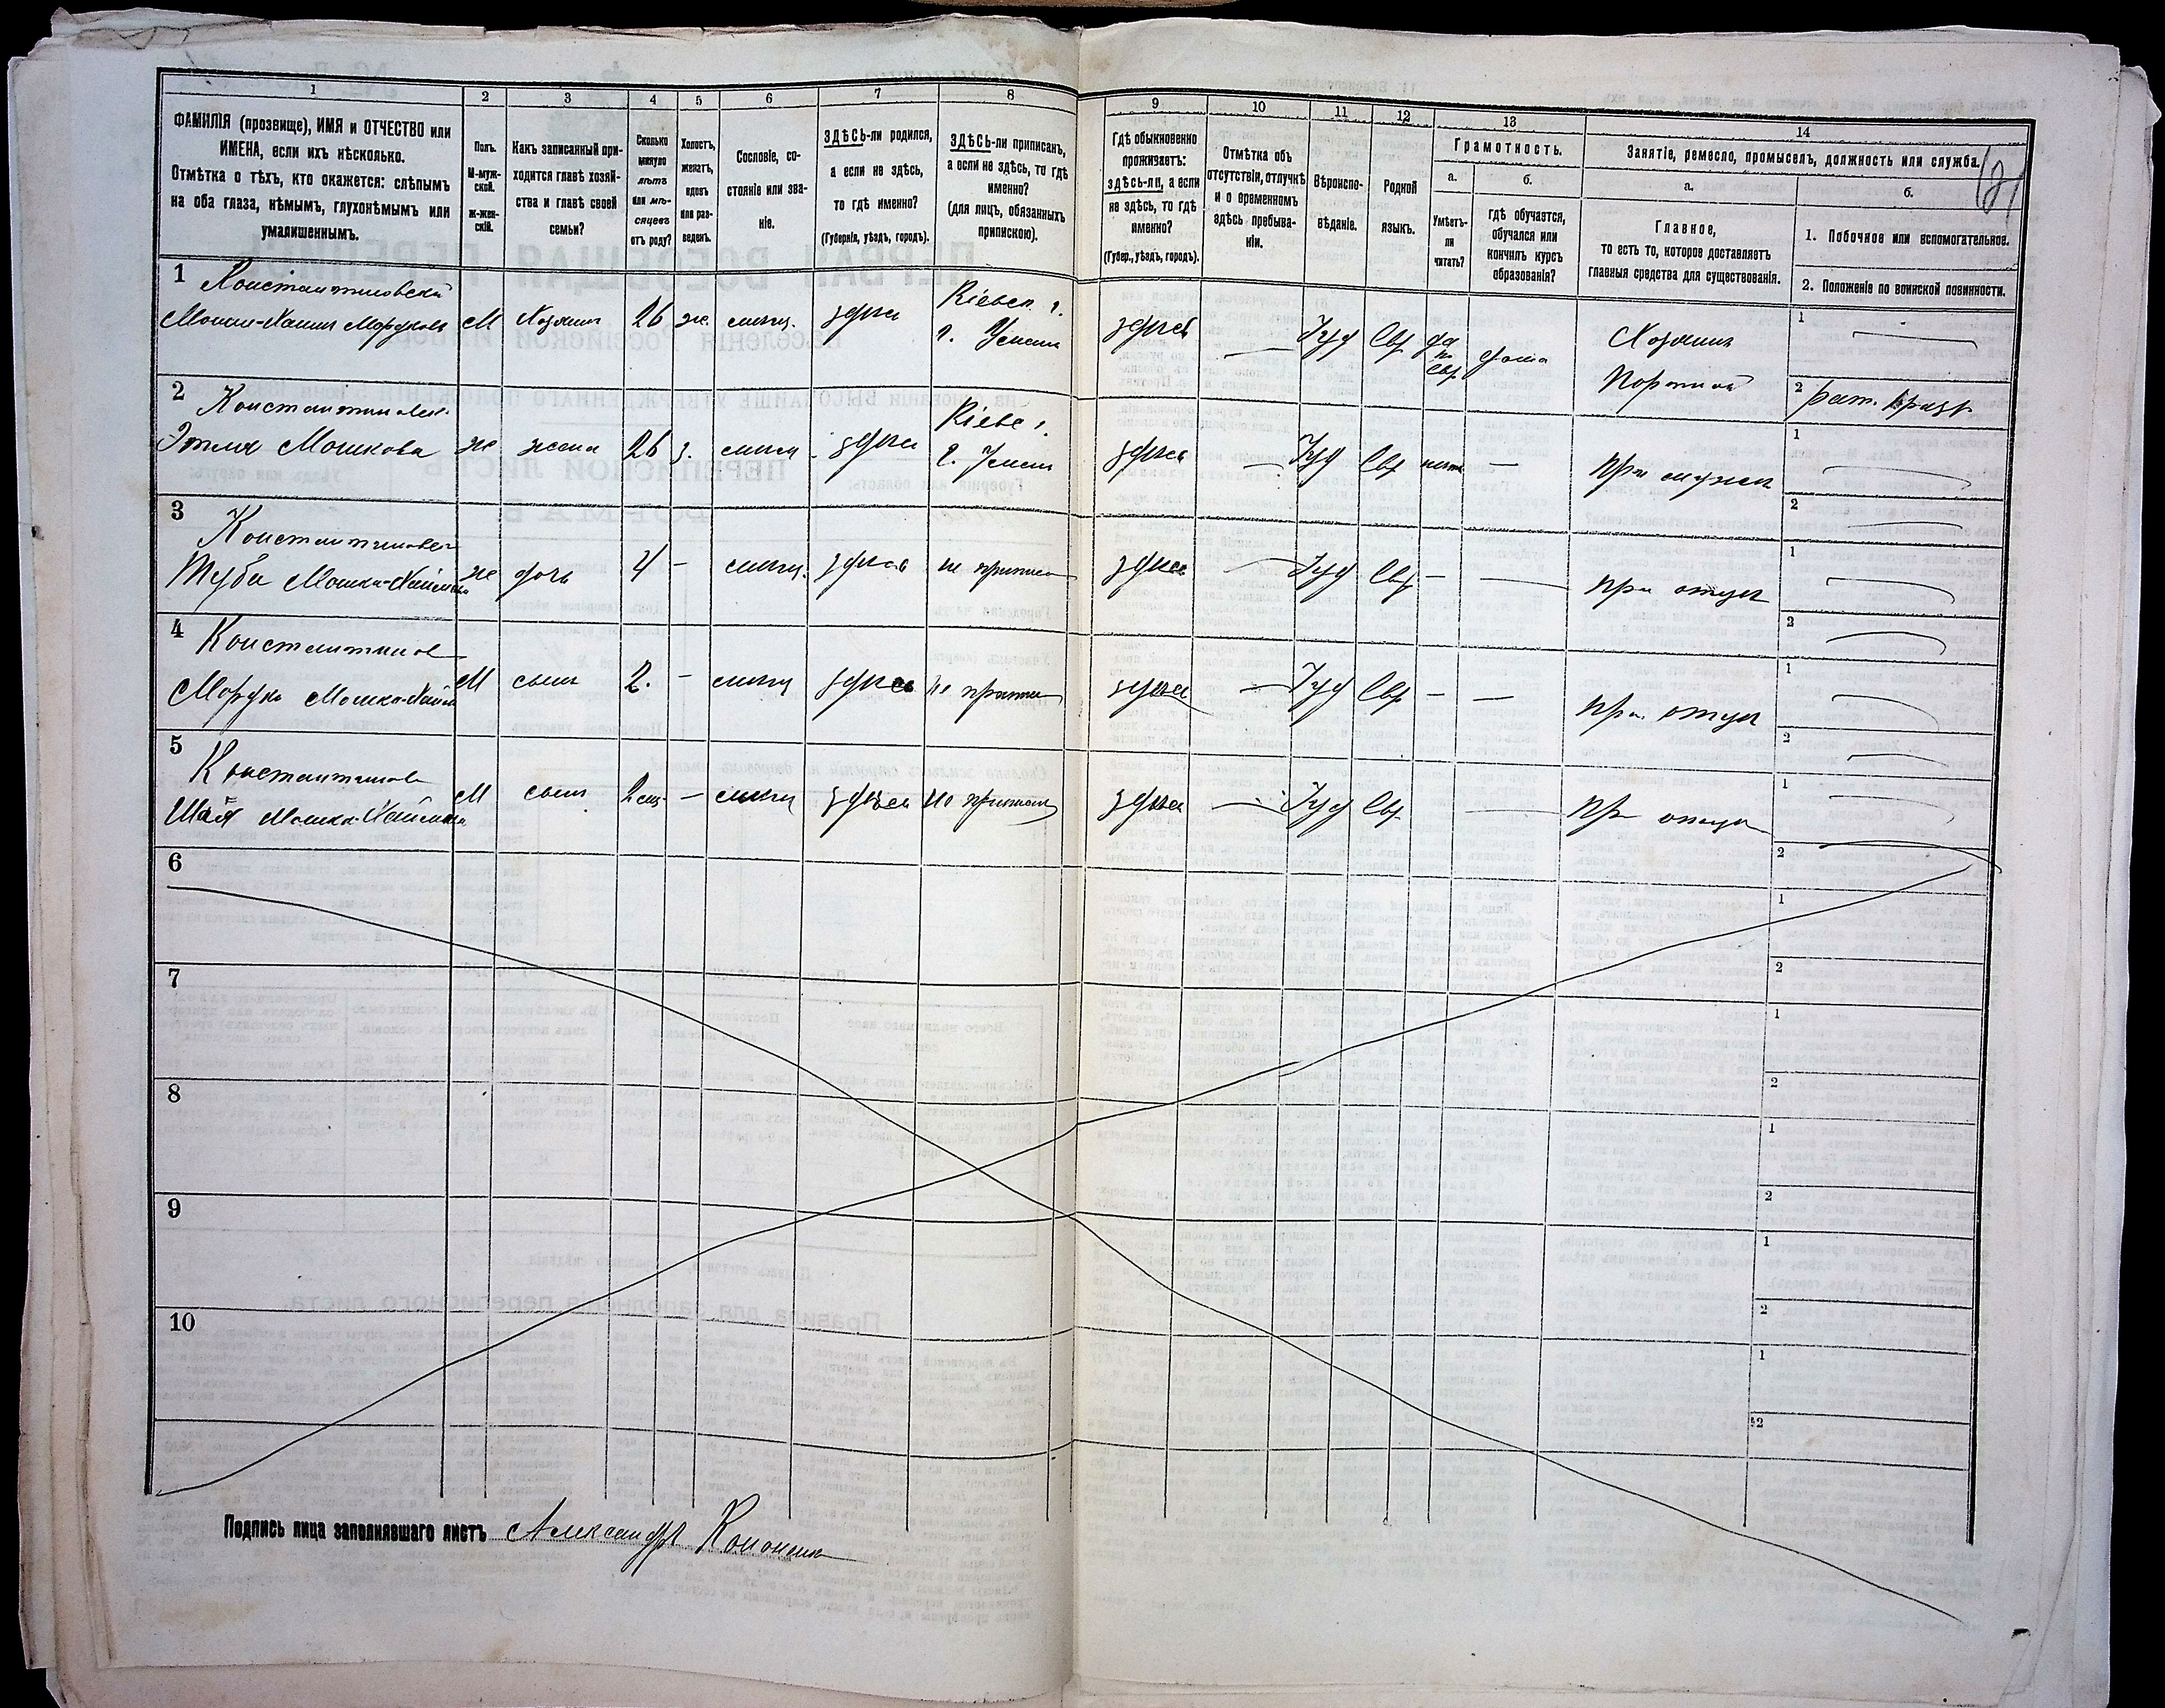 1
2
3
4
5
6
7
8
9
10
11
12
13
14
ФАМИЛІЯ (прозвище), ИМЯ и ОТЧЕСТВО или
ИМЕНА, если ихъ нѣсколько.
Отмѣтка о тѣхъ, кто окажется: слѣпымъ
на оба глаза, нѣмымъ, глухонѣмымъ или
умалишеннымъ.
Полъ.
М-муж-
ской.
Ж-жен-
скій.
Какъ записанный при-
ходится главѣ хозяй-
ства и главѣ своей
семьи?
Сколько
минуло
лѣтъ
или мѣ-
сяцевъ
отъ роду?
Холостъ,
женатъ,
вдовъ
или раз-
веденъ.
Сословіе, со-
стояніе или зва-
ніе.
ЗДѢСЬ-ли родился,
а если не здѣсь,
то гдѣ именно?
(Губернія, уѣздъ, городъ).
ЗДѢСЬ-ли приписанъ,
а если не здѣсь, то гдѣ
именно?
(для лицъ, обязанныхъ
припискою).
Гдѣ обыкновенно
проживаетъ:
здѣсь-ли, а если
не здѣсь, то гдѣ
именно?
(Губер., уѣздъ, городъ).
Отмѣтка объ
отсутствіи, отлучкѣ
и о временномъ
здѣсь пребыва-
ніи.
Вѣроиспо-
вѣданіе.
Родной
языкъ.
Грамотность.
а.
Умѣетъ-
ли
читать?
б.
гдѣ обучается,
обучался или
кончилъ курсъ
образованія?
Занятіе, ремесло, промыселъ, должность или служба.
а.
Главное,
то есть то, которое доставляетъ
главныя средства для существованія.
б.
1. Побочное или вспомогательное.
2. Положеніе по воинской повинности.
1 Константиновскій
Мошко-Хаимъ Мордковъ М Хозяинъ 26 ж. мѣщ. здѣсь Кіевск. г.
г. Умани здѣсь — Іуд Евр да
по
Евр дома Хозяинъ
Портной 1 —
2 рат. 1 разр.
2 Константиновск.
Этля Мошкова ж жена 26 з. мѣщ. здѣсь Кіев г.
г. Умань здѣсь — Іуд Евр нѣтъ — при мужѣ 1 —
2 —
3 Константиновск
Туба Мошко-Хаимова ж дочь 4 — мѣщ. здѣсь не припис здѣсь — Іуд Евр — — при отцѣ 1 —
2 —
4 Константинов
Мордко Мошко-Хаим М сынъ 2. — мѣщ здѣсь не припис здѣсь — Іуд Евр — — при отцѣ 1 —
2 —
5 Константинов
Шая Мошко-Хаимов М сынъ 2 мѣс. — мѣщ здѣсь не приписан здѣсь — Іуд Евр — при отцѣ 1 —
2 —
6
1
2
7
1
2
8
1
2
9
1
2
10
1
2
Подпись лица заполнявшаго листъ Александръ Кононенко